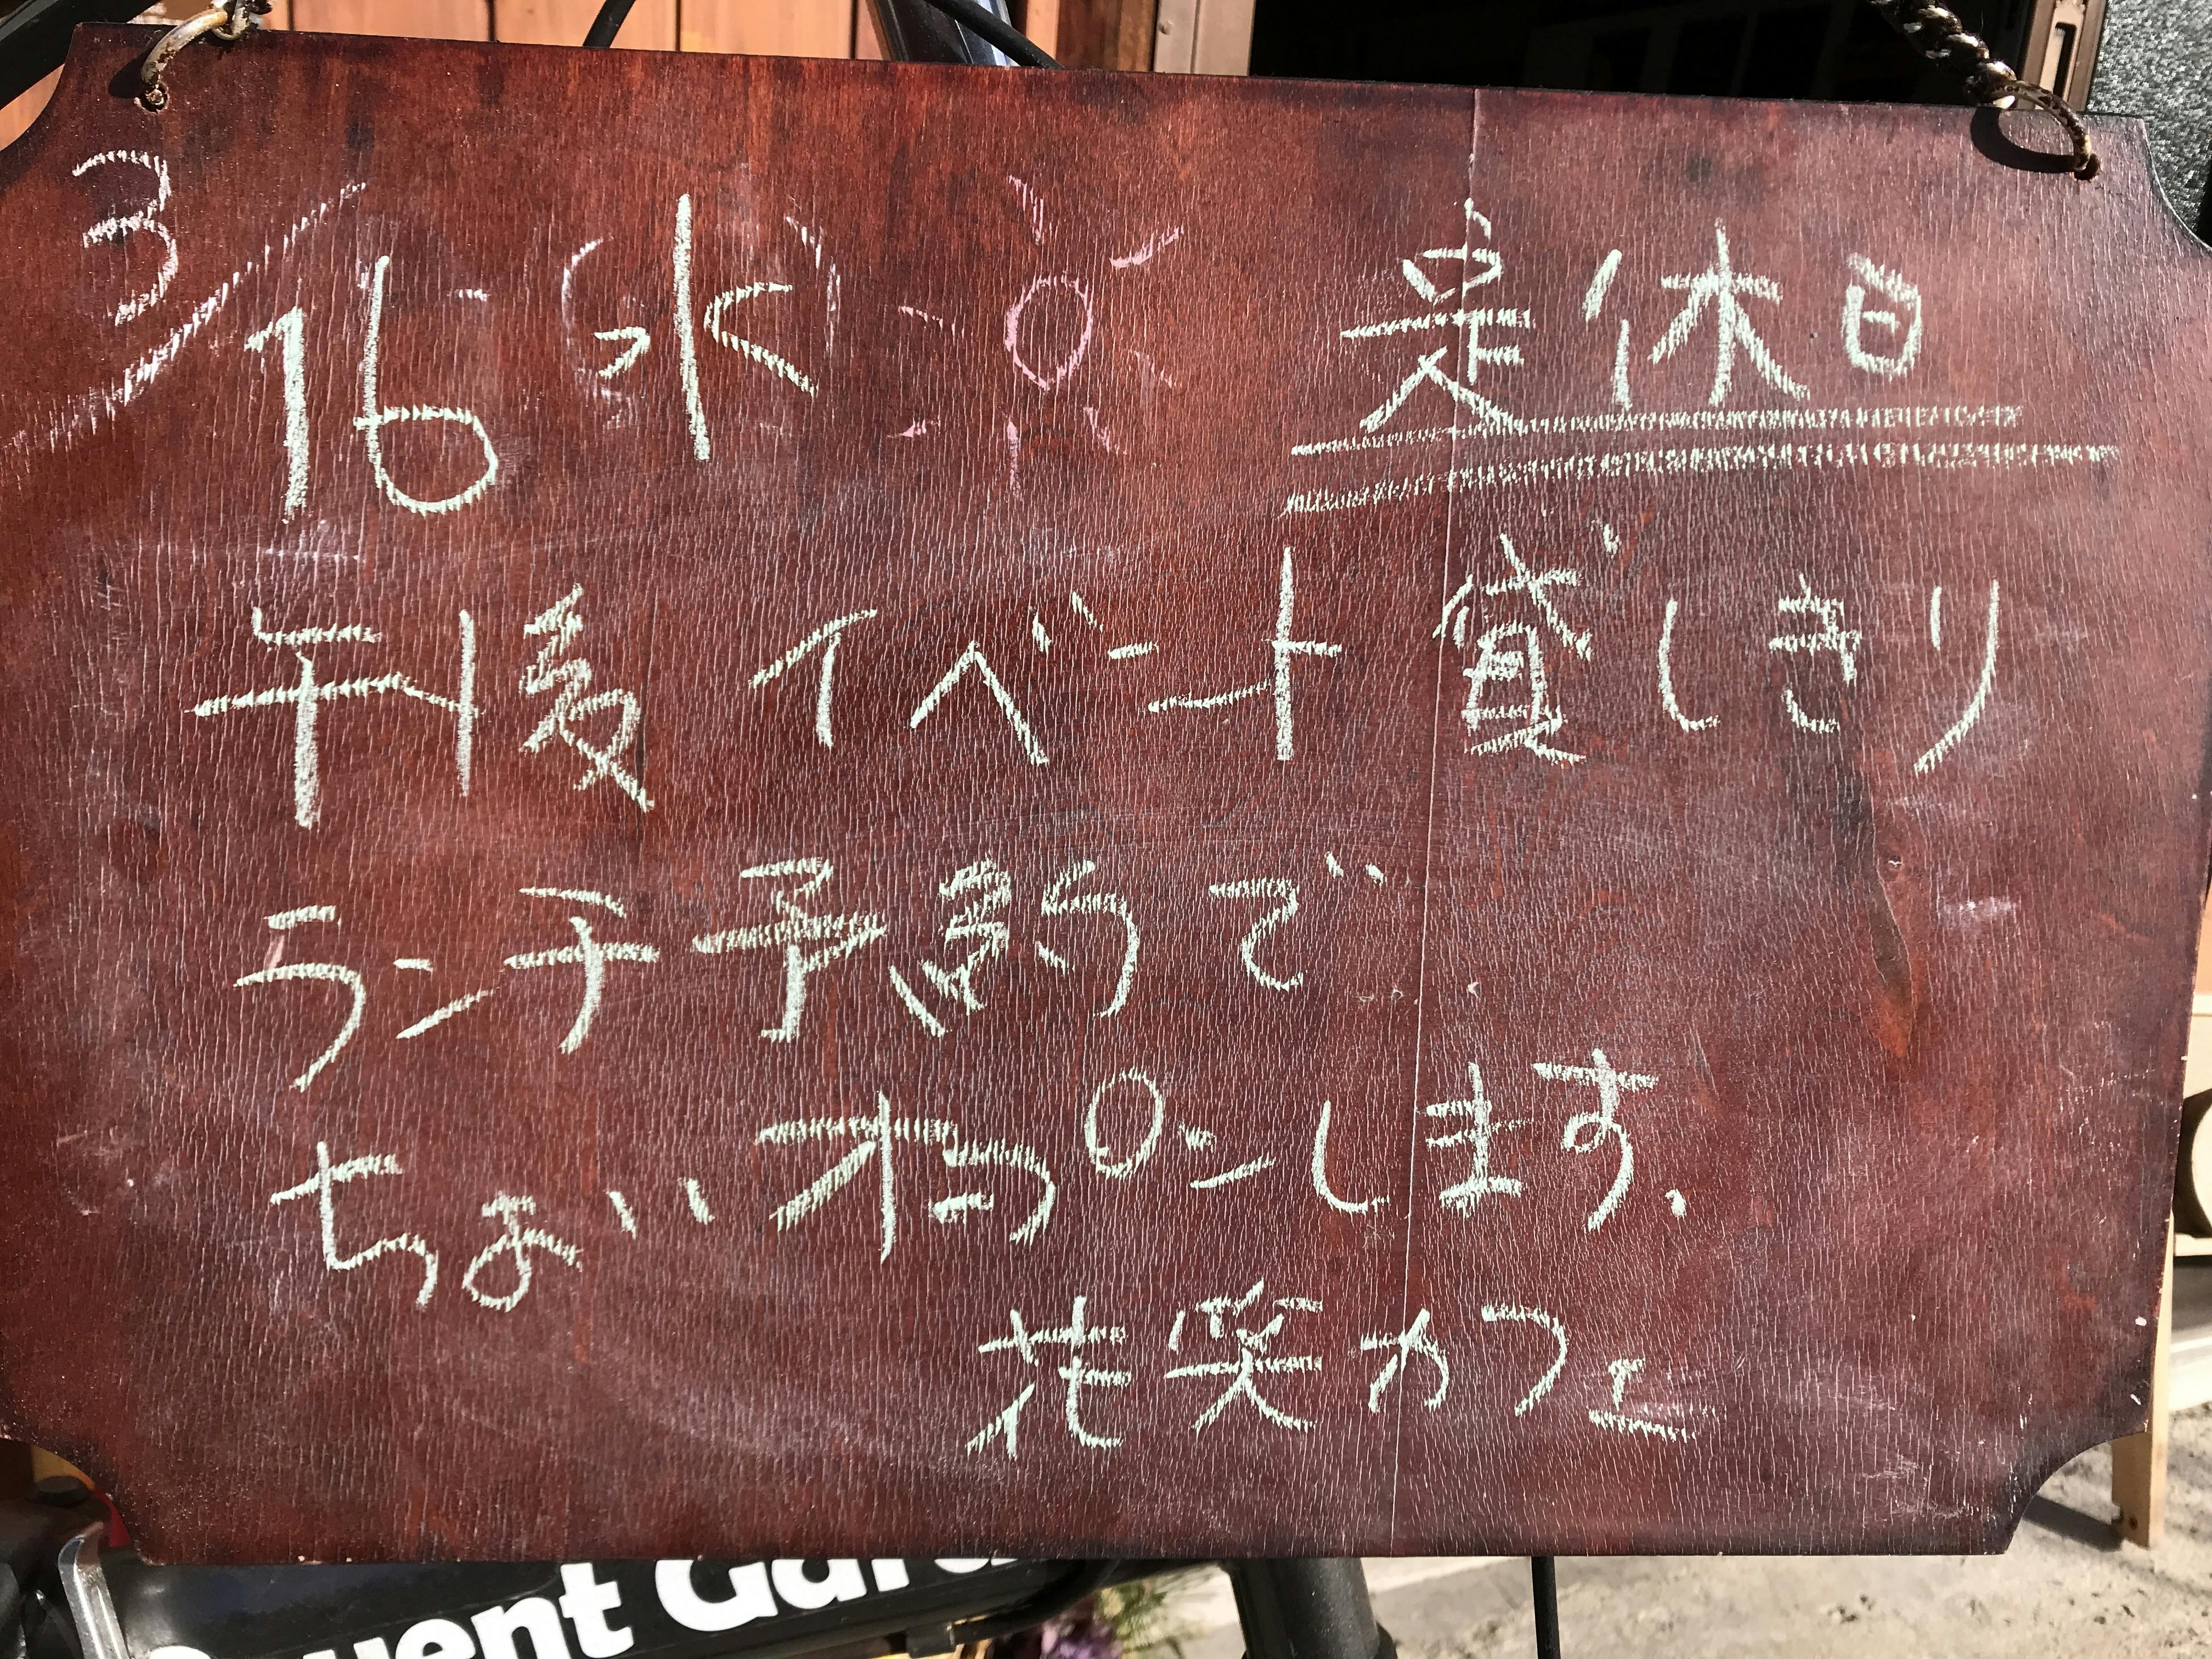 3/16(水) 定休日
午後イベント貸しきり
ランチ予約で
ちょいオープンします.
花笑カフェ